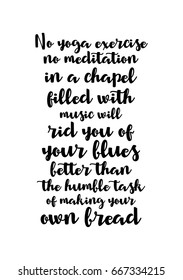 No yoga exercise
no meditation
in a chapel
filled with
music will
rid you of
your blues
better than
the humble task
of making your
own bread
shutterstock.com · 667334215